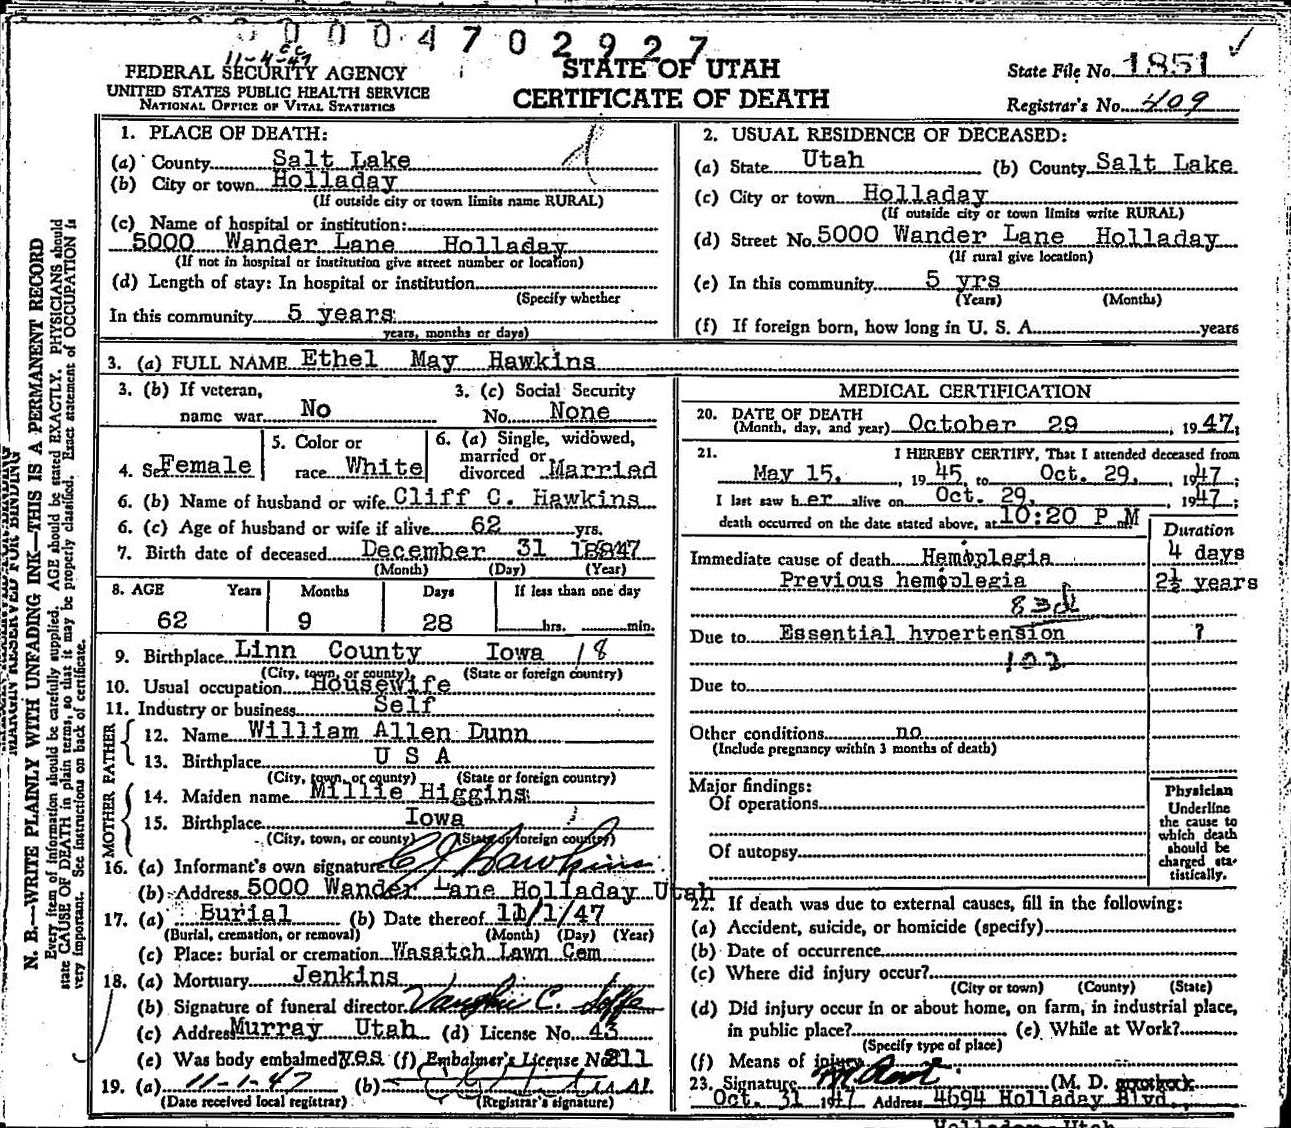 0 0 0 0 4 7 0 2 9 2 7
11-4-47
FEDERAL SECURITY AGENCY
UNITED STATES PUBLIC HEALTH SERVICE
NATIONAL OFFICE OF VITAL STATISTICS
STATE OF UTAH
CERTIFICATE OF DEATH
State File No. 1851
Registrar's No. 409
N. B.—WRITE PLAINLY WITH UNFADING INK—THIS IS A PERMANENT RECORD
Every item of information should be carefully supplied. AGE should be stated EXACTLY. PHYSICIANS should
state CAUSE OF DEATH in plain terms, so that it may be properly classified. Exact statement of OCCUPATION is
very important. See instructions on back of certificate.
MARGIN RESERVED FOR BINDING
1. PLACE OF DEATH:
(a) County Salt Lake
(b) City or town Holladay
(If outside city or town limits name RURAL)
(c) Name of hospital or institution:
5000 Wander Lane Holladay
(If not in hospital or institution give street number or location)
(d) Length of stay: In hospital or institution
(Specify whether
In this community 5 years
years, months or days)
2. USUAL RESIDENCE OF DECEASED:
(a) State Utah (b) County Salt Lake
(c) City or town Holladay
(If outside city or town limits write RURAL)
(d) Street No. 5000 Wander Lane Holladay
(If rural give location)
(e) In this community 5 yrs
(Years) (Months)
(f) If foreign born, how long in U. S. A. years
3. (a) FULL NAME Ethel May Hawkins
3. (b) If veteran,
name war No
3. (c) Social Security
No. None
4. Sex Female
5. Color or
race White
6. (a) Single, widowed,
married or
divorced Married
6. (b) Name of husband or wife Cliff C. Hawkins
6. (c) Age of husband or wife if alive 62 yrs.
7. Birth date of deceased December 31
(Month) (Day) (Year)
8. AGE Years Months Days If less than one day
62 9 28 hrs. min.
9. Birthplace Linn County Iowa 18
(City, town, or county) (State or foreign country)
10. Usual occupation Housewife
11. Industry or business Self
FATHER
12. Name William Allen Dunn
13. Birthplace U S A
(City, town, or county) (State or foreign country)
MOTHER
14. Maiden name Millie Higgins
15. Birthplace Iowa
(City, town, or county) (State or foreign country)
16. (a) Informant's own signature C J Hawkins
(b) Address 5000 Wander Lane Holladay Utah
17. (a) Burial (b) Date thereof 11/1/47
(Burial, cremation, or removal) (Month) (Day) (Year)
(c) Place: burial or cremation Wasatch Lawn Cem
18. (a) Mortuary Jenkins
(b) Signature of funeral director C.
(c) Address Murray Utah (d) License No. 43
(e) Was body embalmed? yes (f) Embalmer's License No. 211
19. (a) 11-1-47 (b)
(Date received local registrar) (Registrar's signature)
MEDICAL CERTIFICATION
20. DATE OF DEATH
(Month, day, and year) October 29, 1947;
21. I HEREBY CERTIFY, That I attended deceased from
May 15, 1945, to Oct. 29, 1947;
I last saw her alive on Oct. 29, 1947;
death occurred on the date stated above, at 10:20 P M
Duration
Immediate cause of death Hemiplegia 4 days
Previous hemiplegia 2½ years
83d
Due to Essential hypertension ?
102
Due to
Other conditions no
(Include pregnancy within 3 months of death)
Major findings:
Of operations
Of autopsy
Physician
Underline
the cause to
which death
should be
charged sta-
tistically.
22. If death was due to external causes, fill in the following:
(a) Accident, suicide, or homicide (specify)
(b) Date of occurrence
(c) Where did injury occur?
(City or town) (County) (State)
(d) Did injury occur in or about home, on farm, in industrial place,
in public place? (e) While at Work?
(Specify type of place)
(f) Means of injury
23. Signature (M. D.
Oct. 31 1947 Address 4694 Holladay Blvd.,
Holladay Utah